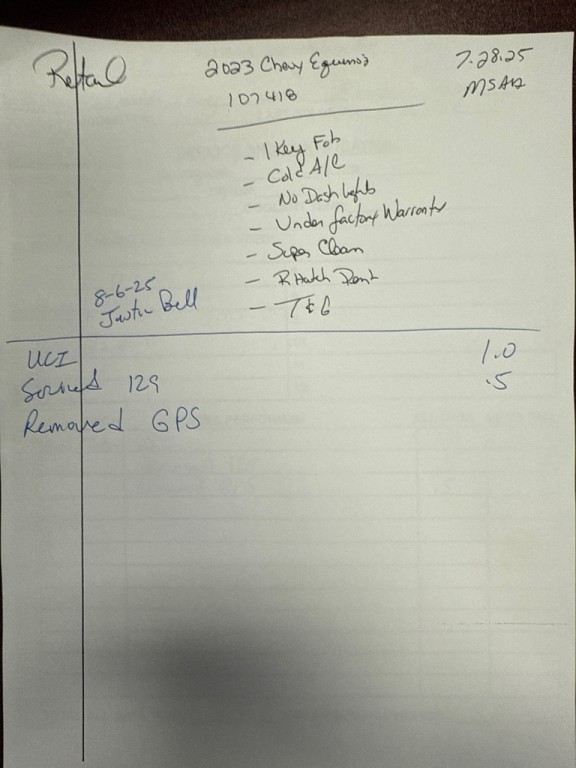 Retail
2023 Chevy Equinox
7.28.25
107418
- 1 Key Fob
- Cold A/C
- No Dash Lights
- Under factory Warranty
- Super Clean
- R Hatch Dent
- T&G
8-6-25
Justin Bell
UCI 1.0
129 .5
Removed GPS